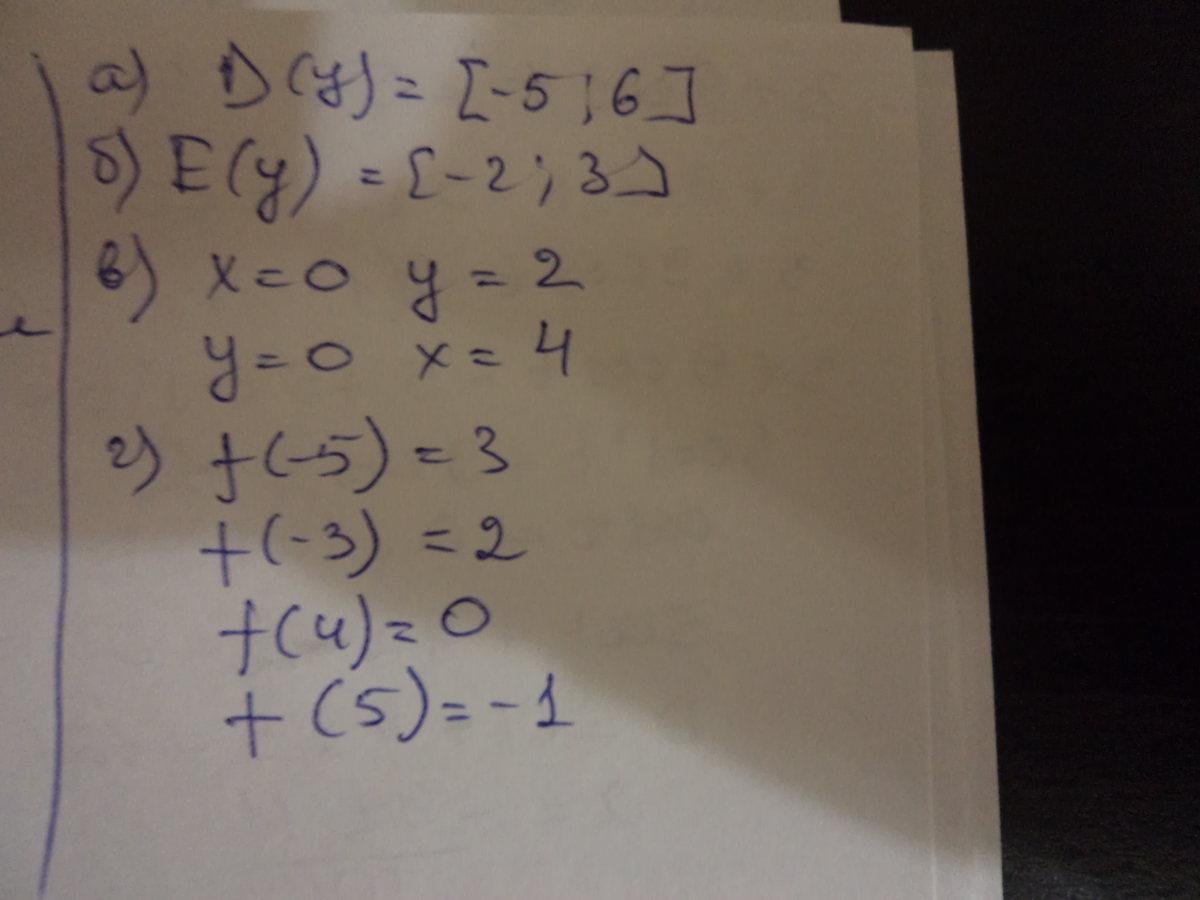 а) D(y) = [-5; 6]
б) E(y) = [-2; 3]
в) x = 0 y = 2
y = 0 x = 4
г) f(-5) = 3
f(-3) = 2
f(4) = 0
f(5) = -1